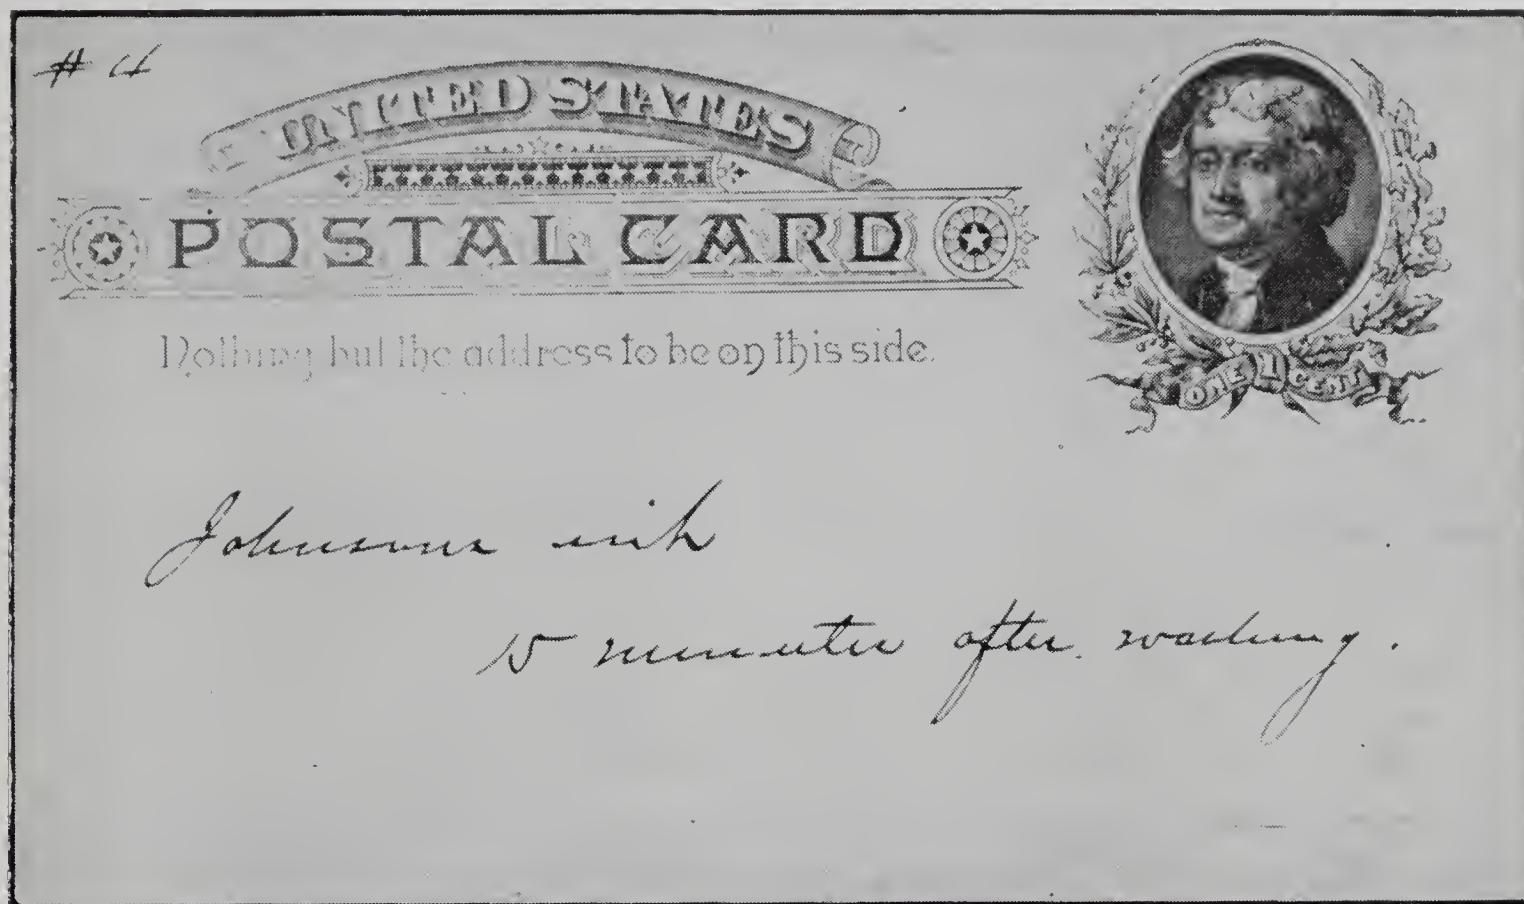 # 4
UNITED STATES
POSTAL CARD
Nothing but the address to be on this side.
ONE 1 CENT
Johnsons ink
15 minutes after washing.